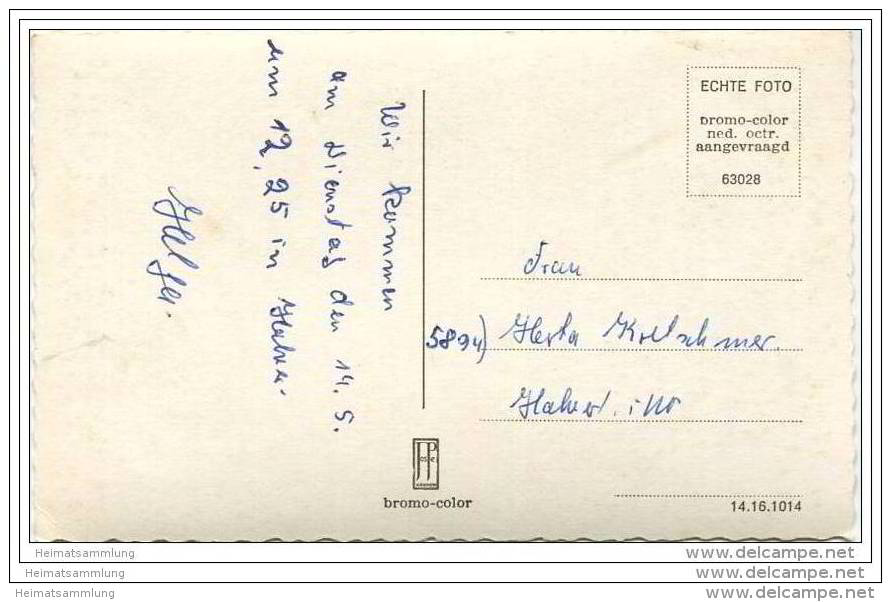 Wir kommen
am Dienstag den 14. 5.
um 12,25 in Halver.
Helga.
ECHTE FOTO
bromo-color
ned. octr.
aangevraagd
63028
Frau
5894) Herta Kretschmer.
Halver i/W
bromo-color
14.16.1014
Heimatsammlung
www.delcampe.net
Heimatsammlung
www.delcampe.net
Heimatsammlung
www.delcampe.net